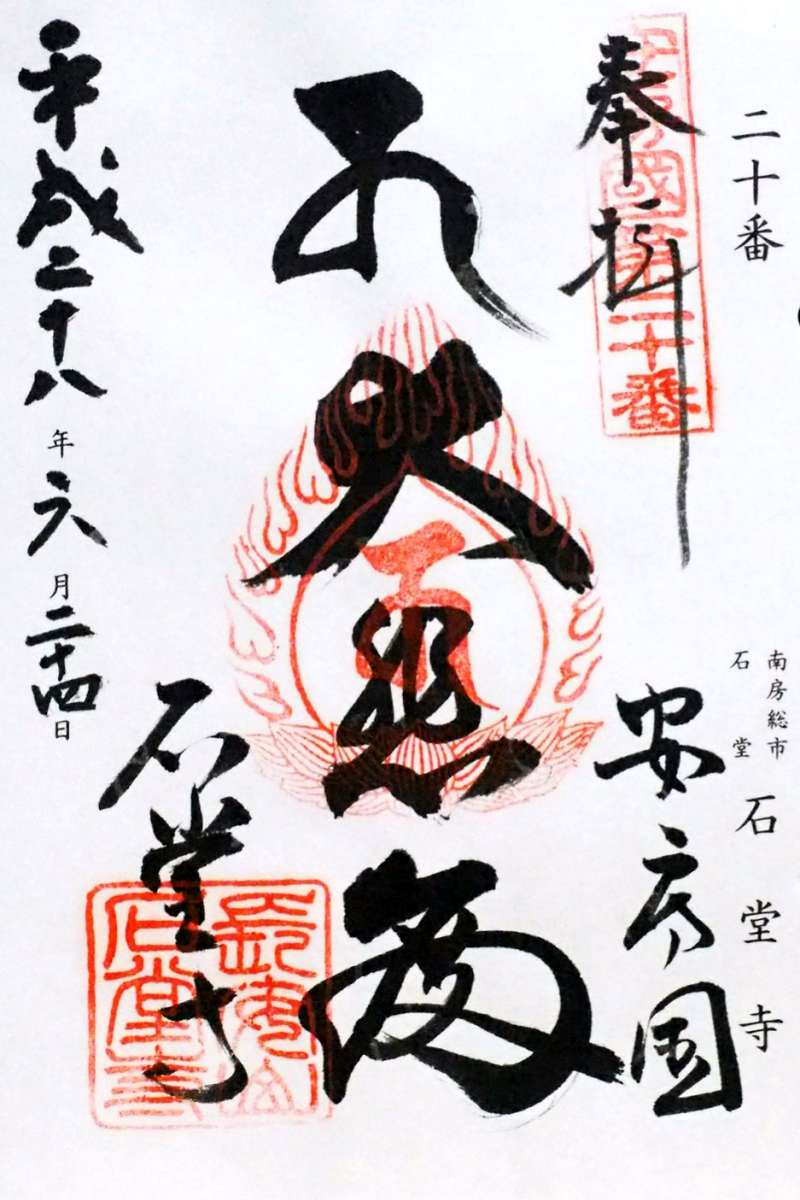 二十番
南房総市
石堂
石堂寺
奉拝
安房國第二十番
安房国
大悲
石堂寺
長安山
石堂寺
平成二十八年六月二十四日